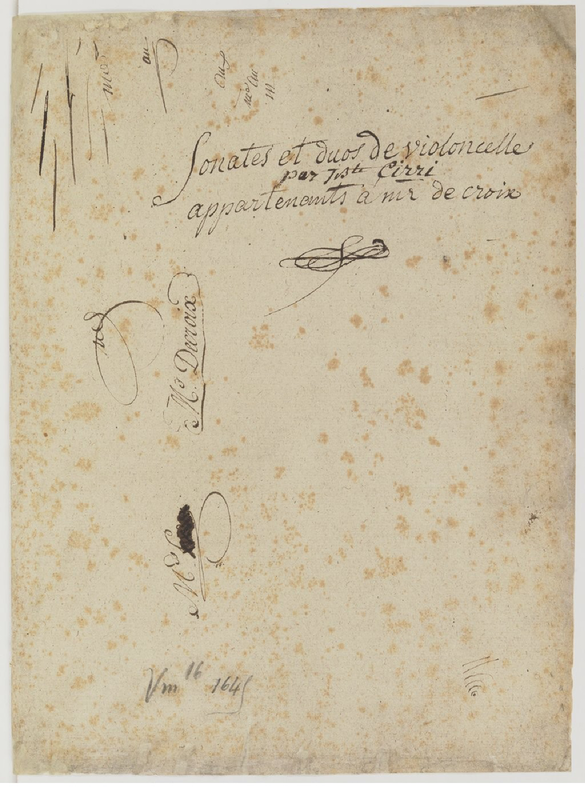 Sonates et duos de violoncelle
par J.Bte Cirri
appartenants à mr de croix
Mr Decroix
Vm 16 1645